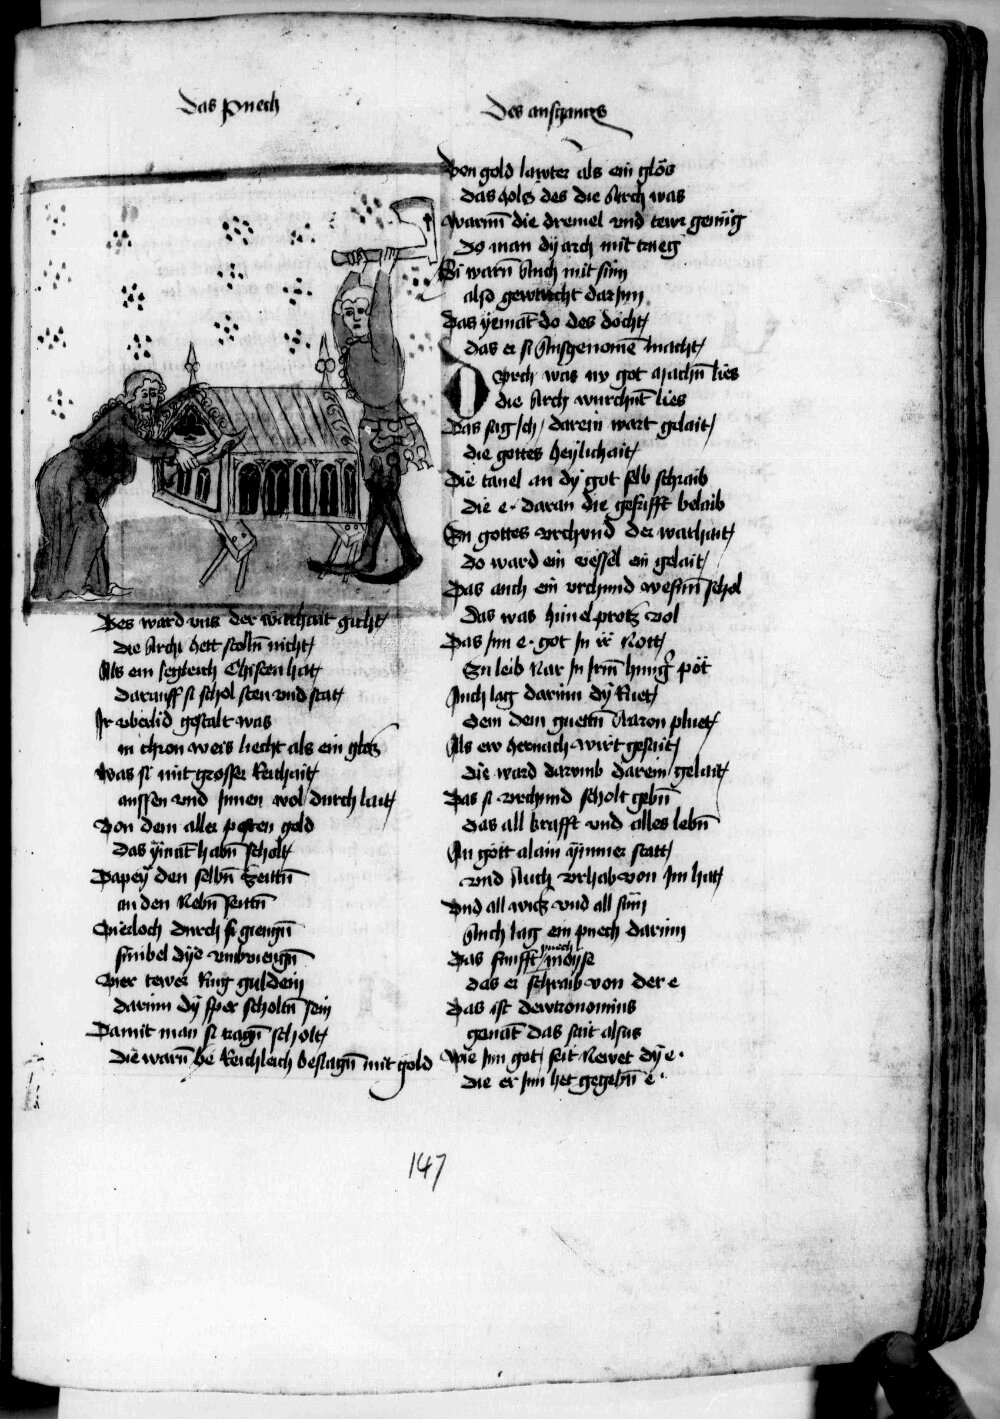 Das Puech
Des ausganges
Des ward uns der warhait gicht
Die Archi hett stolln nicht
Als ein segleich Chisten hat
Darauff si schol sten und stat
Ir uberlid gestalt was
in chron weis liecht als ein glas
Was si mit grosser Reichait
aussen und Innen wol durch lait
Von dem aller pesten gold
Das yemāt habn scholt
Dapey den selbn Zeittn
an den Nebn seittn
Vierloch durch si giengn
sinibel dye umbviengn
Vier tewer Ring guldein
darinn dy sper scholtn sein
Damit man si tragn scholt
Die warn Reichleich beslagn mit gold
Von gold lawter als ein glos
das Holtz des die Arch was
Warnn die dremel und tewr genug
do man dy arch mit trueg
Si warn Auch mit sinn
also gewurcht darInn
Das yemāt do des docht
das er si Ausgenomē macht
Do Arch was nv got machn lies
die Arch wurchnt lies
Das sag Ich darein wart gelait
die gottes heylichait
Die tauel an dy got selb schraib
die e. daran die geschrifft belaib
En gottes urchund der warhait
do ward ein vessel ein gelait
Das auch ein urchund wesnn schol
Das was himelprotz vol
Das Inn e. got In ir Nott
En leib Nar In Irm hung pot
Auch lag darinn dy Ruet
dem dem guettn Aaron pluet
Als ew hernach wirt gesait
die ward darumb darein gelait
Das si urchund scholt gebn
das all krafft und alles lebn
An gott alain ymmer statt
und Auch urhab von Im hat
Und all witz und all sinn
Auch lag ein puech darinn
Das funfft puech moyse
das er schraib von der e
Das ist dewtronomius
genāt das sait alsus
Wie Inn got seit Newet dy e.
die er Inn het gegebn e.
147